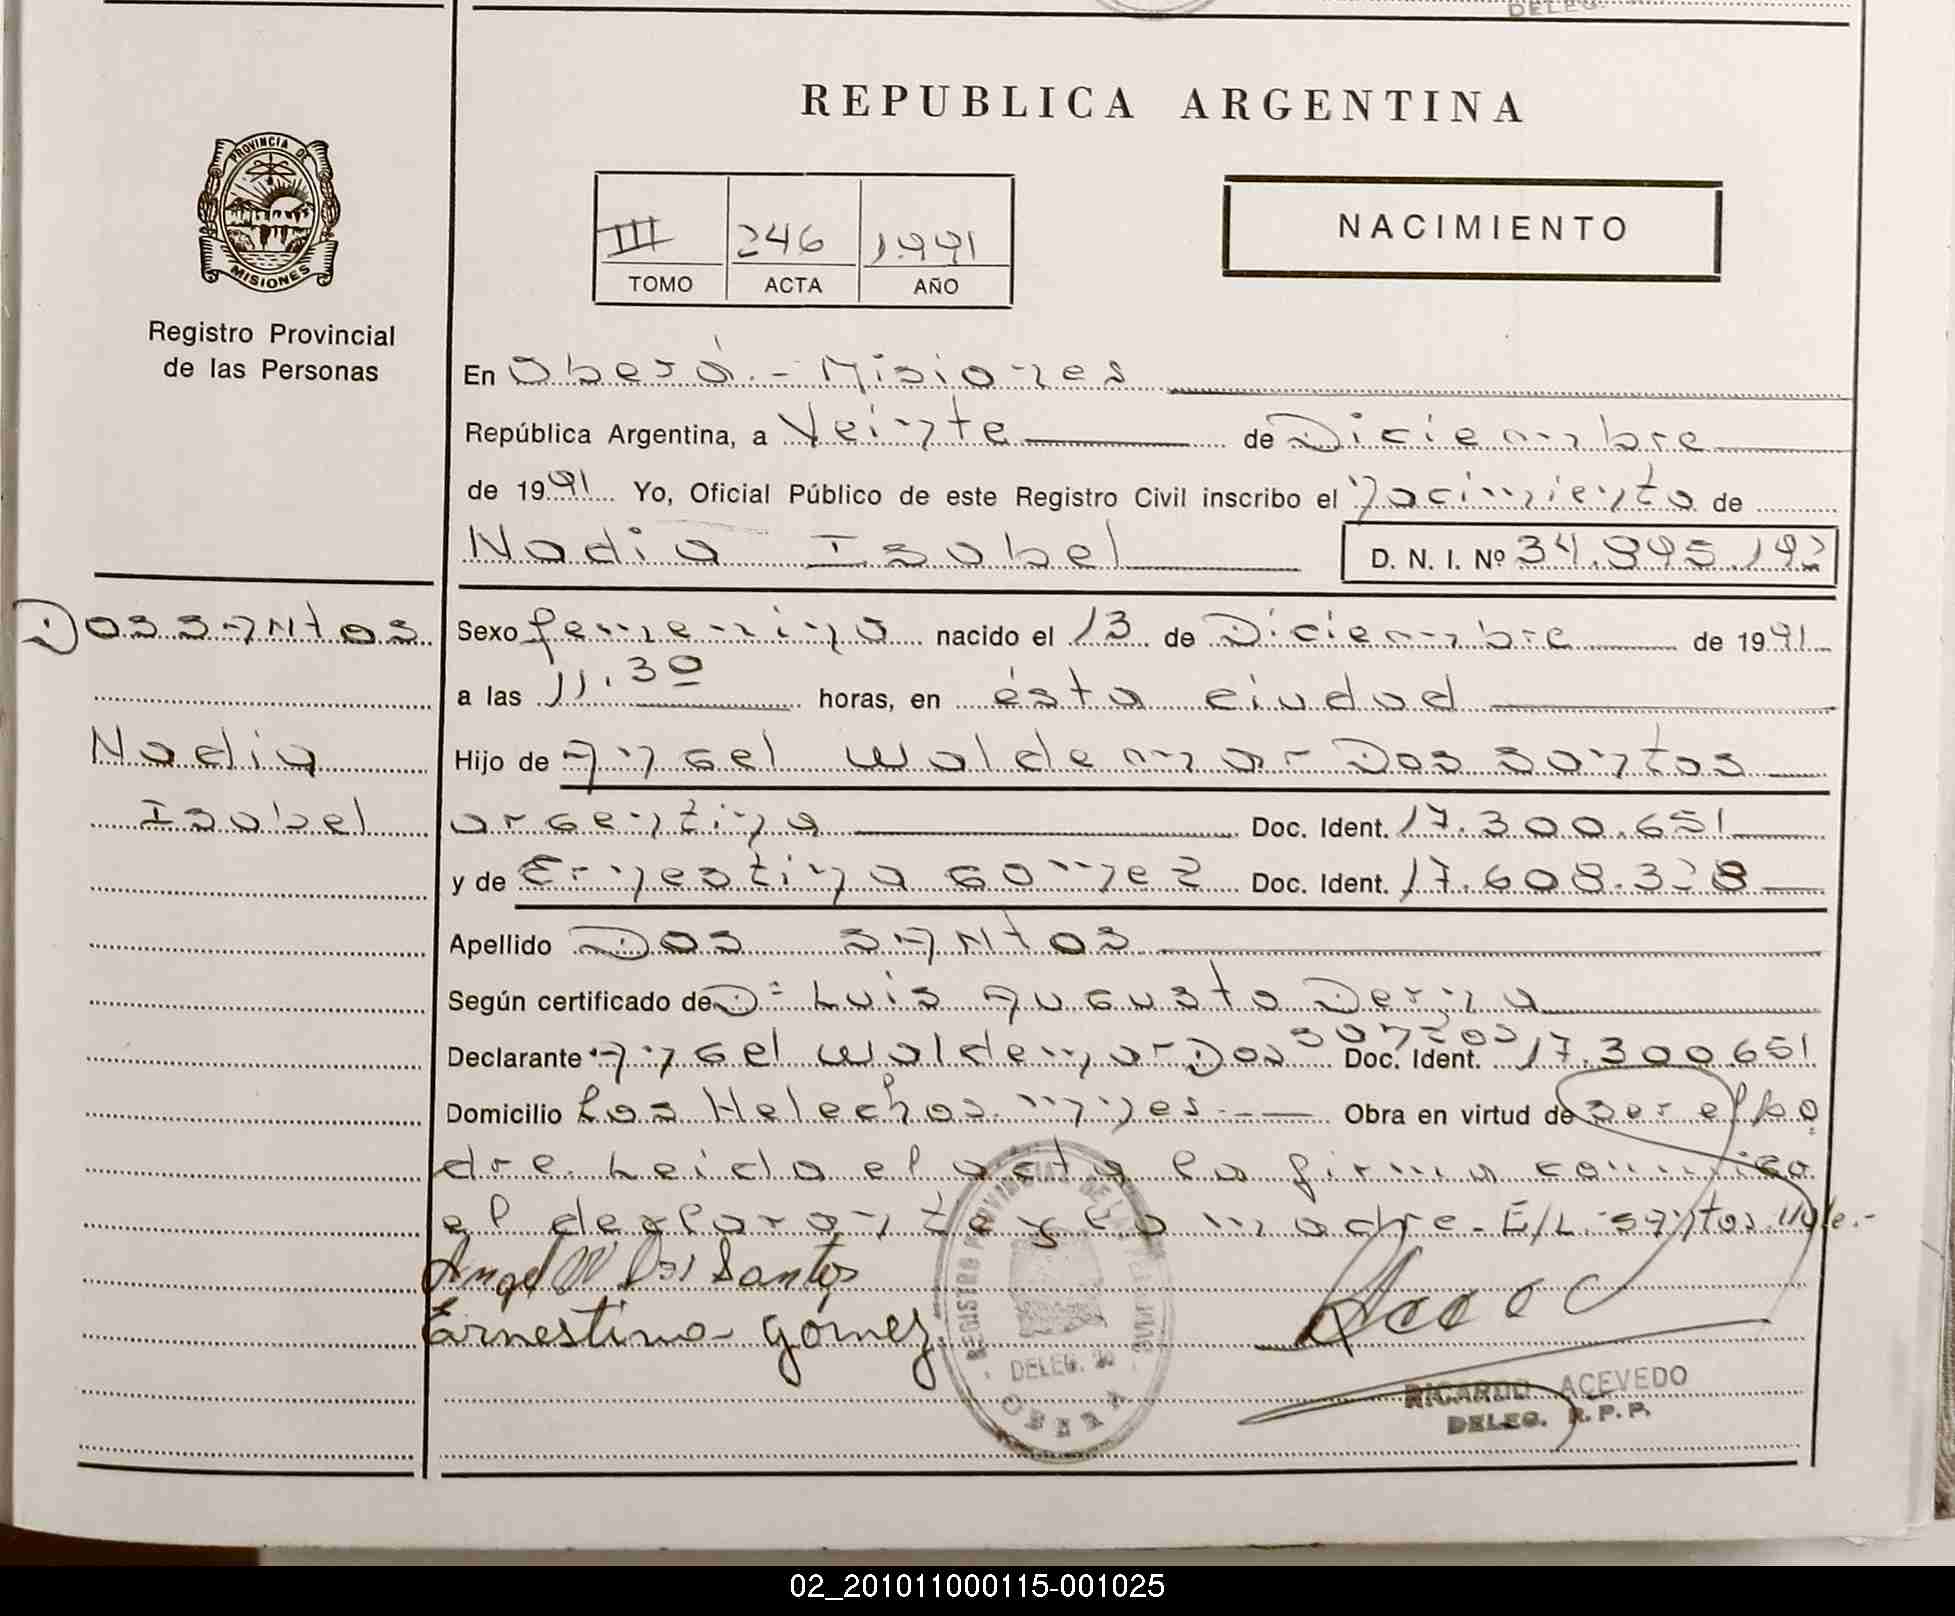 DELEG.
REPUBLICA ARGENTINA
PROVINCIA DE
MISIONES
Registro Provincial
de las Personas
III 246 1.991
TOMO ACTA AÑO
NACIMIENTO
En Oberá.- Misiones
República Argentina, a Veinte de Diciembre
de 1991 Yo, Oficial Público de este Registro Civil inscribo el nacimiento de
Nadia Isabel D. N. I. Nº
Dos santos
Nadia
Isabel
Sexo femenino nacido el 13 de Diciembre de 1991
a las 11.30 horas, en ésta ciudad
Hijo de Angel Waldemar Dos santos
argentina Doc. Ident. 17.300.651
y de Ernestina Gomez Doc. Ident. 17.608.328
Apellido Dos santos
Según certificado de D= Luis Augusto Derna
Declarante Angel Waldemar Dos santos Doc. Ident. 17.300.651
Domicilio Los Helechos. mnes.- Obra en virtud de ser el pa
dre. Leida el acta la firma conmigo
el declarante y la madre.- E/L. santos. Vale.-
Angel W Dos Santos
Ernestina Gómez
REGISTRO PROVINCIAL DE LAS PERSONAS
DELEG.
OBERA
RICARDO ACEVEDO
DELEG. R.P.P.
02_201011000115-001025